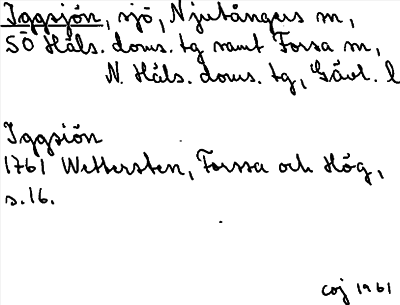 Iggsjön, sjö, Njutångers sn,
SÖ Häls. doms. tg samt Forsa sn,
N. Häls. doms. tg, Gävl. l
Iggsiön
1761 Wettersten, Forssa och Hög,
s. 16.
coj 1961